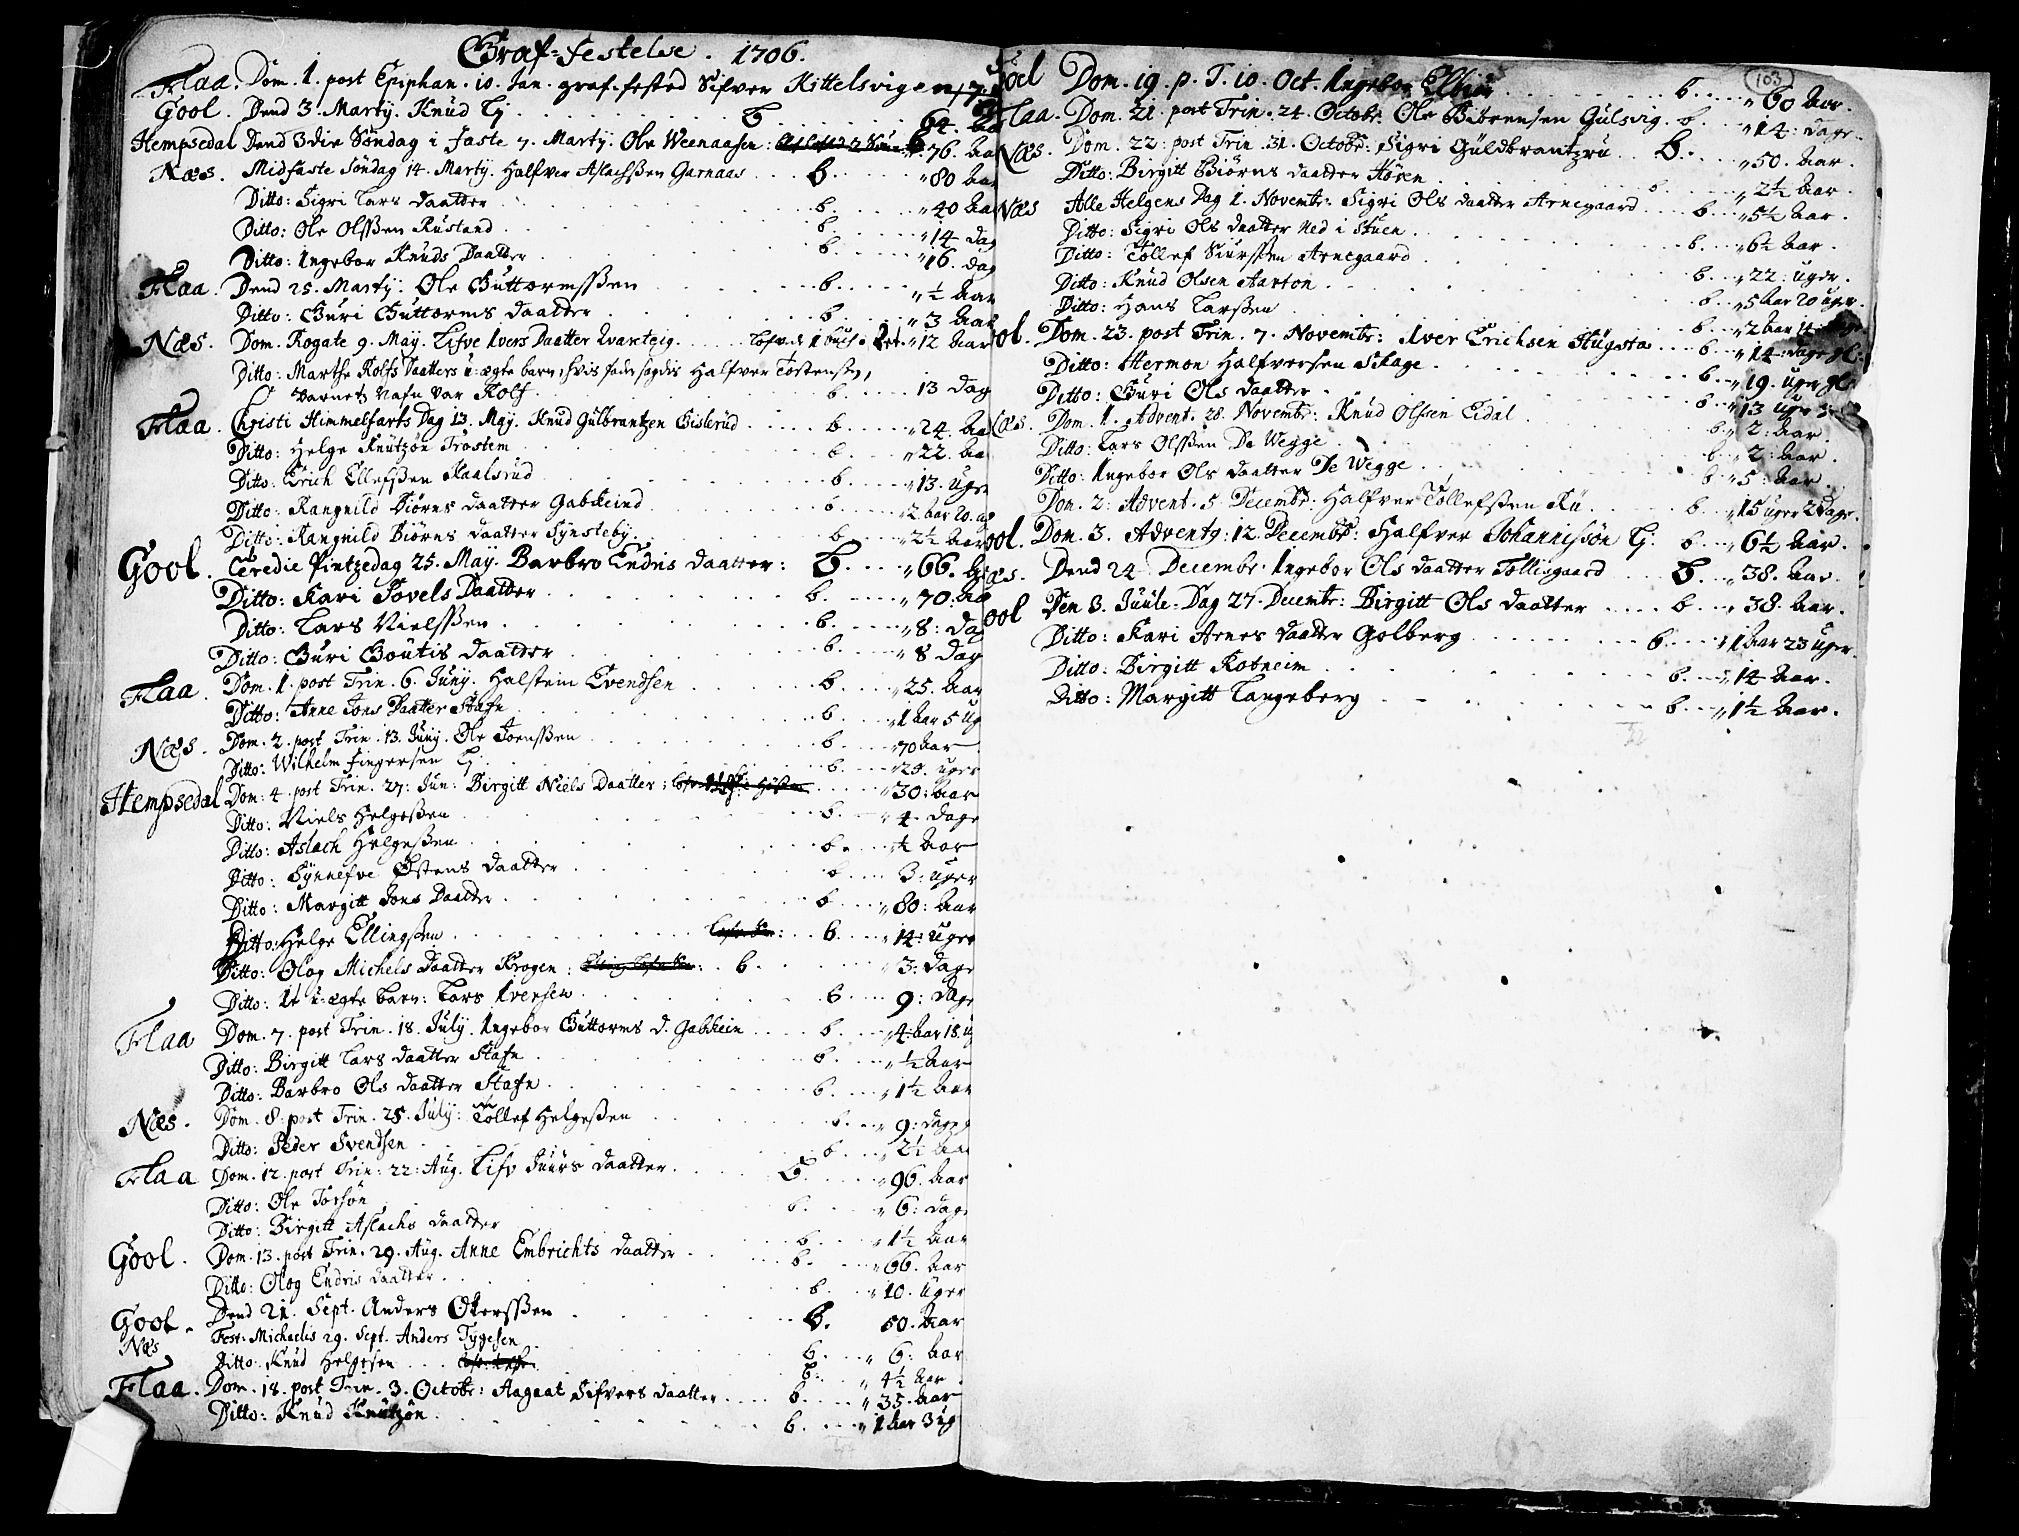 Graf-festelse. 1706.
Flaa. Dom. 1. post Epiphan. 10. Jan. graf-fested Sifver Kittelsvig
Gool. Dend 3. Martij. Knud G. b. 64. Aar
Hempsedal Dend 3die Søndag i faste 7. Martij. Ole Weenaasen: 76. Aar
Næs. Midfaste Søndag 14. Martij. Halfver Aslachsßen Garnaas b. 80 Aar
Ditto: Sigri Lars daatter b. 40 Aar
Ditto: Ole Olsßen Rustand b. 14 dag
Ditto: Ingebor Knuds Daatter b. 16. dag
Flaa. Dend 25. Martij. Ole Guttormsßen b. ½ Aar
Ditto: Guri Guttorms daatter b. 3 Aar
Næs. Dom. Rogate 9. Maij. Lifve Ivers Daatter Kvarteig 12 Aar
Ditto: Marthe Rolfs Daatters u-ægte barn, hvis fader sagdes Halfver Tostensßen,
Barnets nafn var Rolf. b. 13 Dag
Flaa. Christi Himmelfarts Dag 13. Maij. Knud Gulbrantzen Gislerud b. 24. Aar
Ditto: Helge Knutzøn Trostem b. 22. Aar
Ditto: Erich Ellefsßen Kaalsrud b. 13. uger
Ditto: Rangnild Biørns daatter Gabkeind b. 2 Aar 20. ug
Ditto: Rangnild Biørns daatter Synsteby. b. 2½ Aar
Gool. Teredie Pintzedag 25. Maij. Barbro Endris daatter: b. 66. Aar
Ditto: Kari Povels Daatter b. 70. Aa
Ditto: Lars Nielsßen b. 8: dag
Ditto: Guri Goutis daatter b. 8 Dag
Flaa. Dom. 1. post Trin. 6. Junij. Halstein Evendsen b. 25. Aar
Ditto: Anne Jons Daatter Stafn b. 1 Aar 5 ug
Næs. Dom. 2. post Trin. 13. Junij. Ole Joensßen b. 70 Aar
Ditto: Wilhelm Fingersen G. b. 29. uger
Hempsedal Dom: 4. post Trin. 27. Jun: Birgitt Niels Daatter: 30: Aar
Ditto: Niels Helgesßen b. 4. dage
Ditto: Aslach Helgesßen b. ¼ Aar
Ditto: Synnefve Østens daatter b. 3: uger
Ditto: Margitt Jons Daatter b. 80: Aar
Ditto: Helge Ellingsßen b. 14: uger
Ditto: Olog Michels daatter Krogen: b. 3: dage
Ditto: It u-ægte barn: Lars Iversen b. 9: dage
Flaa Dom. 7. post Trin. 18. Julij. Ingebor Guttorms d. Gabkein b. 4 Aar 18. u
Ditto: Birgitt Lars daatter Stafn b. ½ Aar
Ditto: Barbro Ols daatter Stafn b. 1½ Aar
Næs. Dom. 8. post Trin. 25. Julij: Tollef Helgesßen b. 9: dage
Ditto: Peder Svendsen b. 2½ Aar
Flaa Dom. 12. post Trin: 22: Aug. Lifv Juurs daatter b. 96. Aar
Ditto: Ole Torsøn b. 6: dage
Ditto: Birgitt Aslachs daatter b. 1½ Aar
Gool. Dom. 13. post Trin. 29. Aug. Anne Embrichts daatter b. 66. Aar
Ditto: Olog Endris daatter b. 10. uger
Gool. Dend 21. Sept. Anders Olersßen b. 50. Aar
Næs Fest. Michaelis 29. Sept. Anders Tygesen b. 6: Aar
Ditto: Knud Helgesen b. 4½ Aar
Flaa. Dom. 18. post Trin. 3. Octobr: Aagaat Sifvers daatter b. 35. Aar
Ditto: Knud Knutzøn b. 1 Aar 3 ug
103
ool Dom. 19. p. T. 10. Oct. Ingebor b. 60 Aar.
Flaa. Dom. 21. post Trin. 24. Octobr. Ole Biørensen Gulsvig. b. 14: dage.
Næs. Dom. 22: post Trin. 31. Octobr: Sigri Guldbrantzru b. 50. Aar.
Ditto: Birgitt Biørns daatter Høven b. 2½ Aar.
Næs Alle Helgens Dag 1. Novembr: Sigri Ols daatter Arnegaard b. 5½ Aar.
Ditto: Sigri Ols daatter Ned i Stuen b. 6½ Aar.
Ditto: Tollef Siursßen Arnegaard b. 22: uger.
Ditto: Knud Olsen Aarton b. 5 Aar 20 uger.
Ditto: Hans Larsßen b. 2 Aar
ool. Dom. 23. post Trin. 7. Novembr: Iver Erichsen Hugsta b. 14: dage
Ditto: Hermon Halfversen Skage b. 19. uger
Ditto: Guri Ols daatter b. 13 uger
Næs. Dom. 1. Advent. 28. Novembr: Knud Olsßen Eidal b. 2: Aar.
Ditto: Lars Olsßen De Wegge b. 2: Aar.
Ditto: Ingebor Ols daatter De Wegge b. 5: Aar.
Dom. 2: Advent. 5. Decembr: Halfver Tollefsßen Ru b. 15 uger 2 dage.
ool. Dom. 3. Advents: 12. Decembr: Halfver Johannissøn G. b. 6½ Aar.
æs. Dend 24 Decembr. Ingebor Ols daatter Tollisgaard b. 38. Aar.
ool Den 3. Juule-Dag 27. Decembr: Birgitt Ols daatter b. 38. Aar.
Ditto: Kari Arnes daatter Golberg b. 1 Aar 23 uger.
Ditto: Birgitt Robneim b. 14 Aar.
Ditto: Margitt Langeberg b. 1½ Aar.